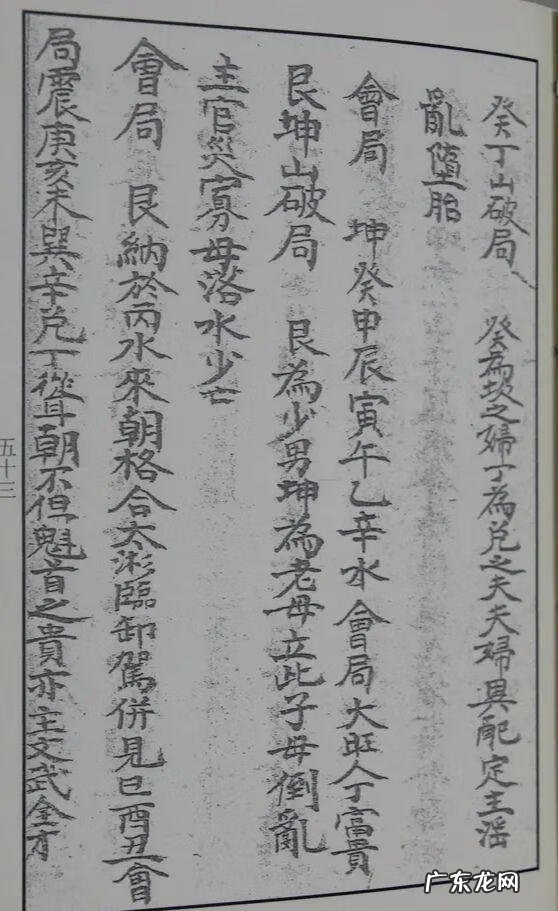 癸丁山破局　癸為坎之婦丁為兌之夫夫婦異配定主淫
亂墮胎
會局　坤癸申辰寅午乙辛水會局大旺人丁富貴
艮坤山破局　艮為少男坤為老母立此子母倒亂
主官災寡母落水少亡
會局　艮納於丙水來朝格合太彩臨卸駕併見巳酉丑會
局震庚亥未巽辛兌丁從耳朝不但魁首之貴亦主文武全才
五十三
广东龙网